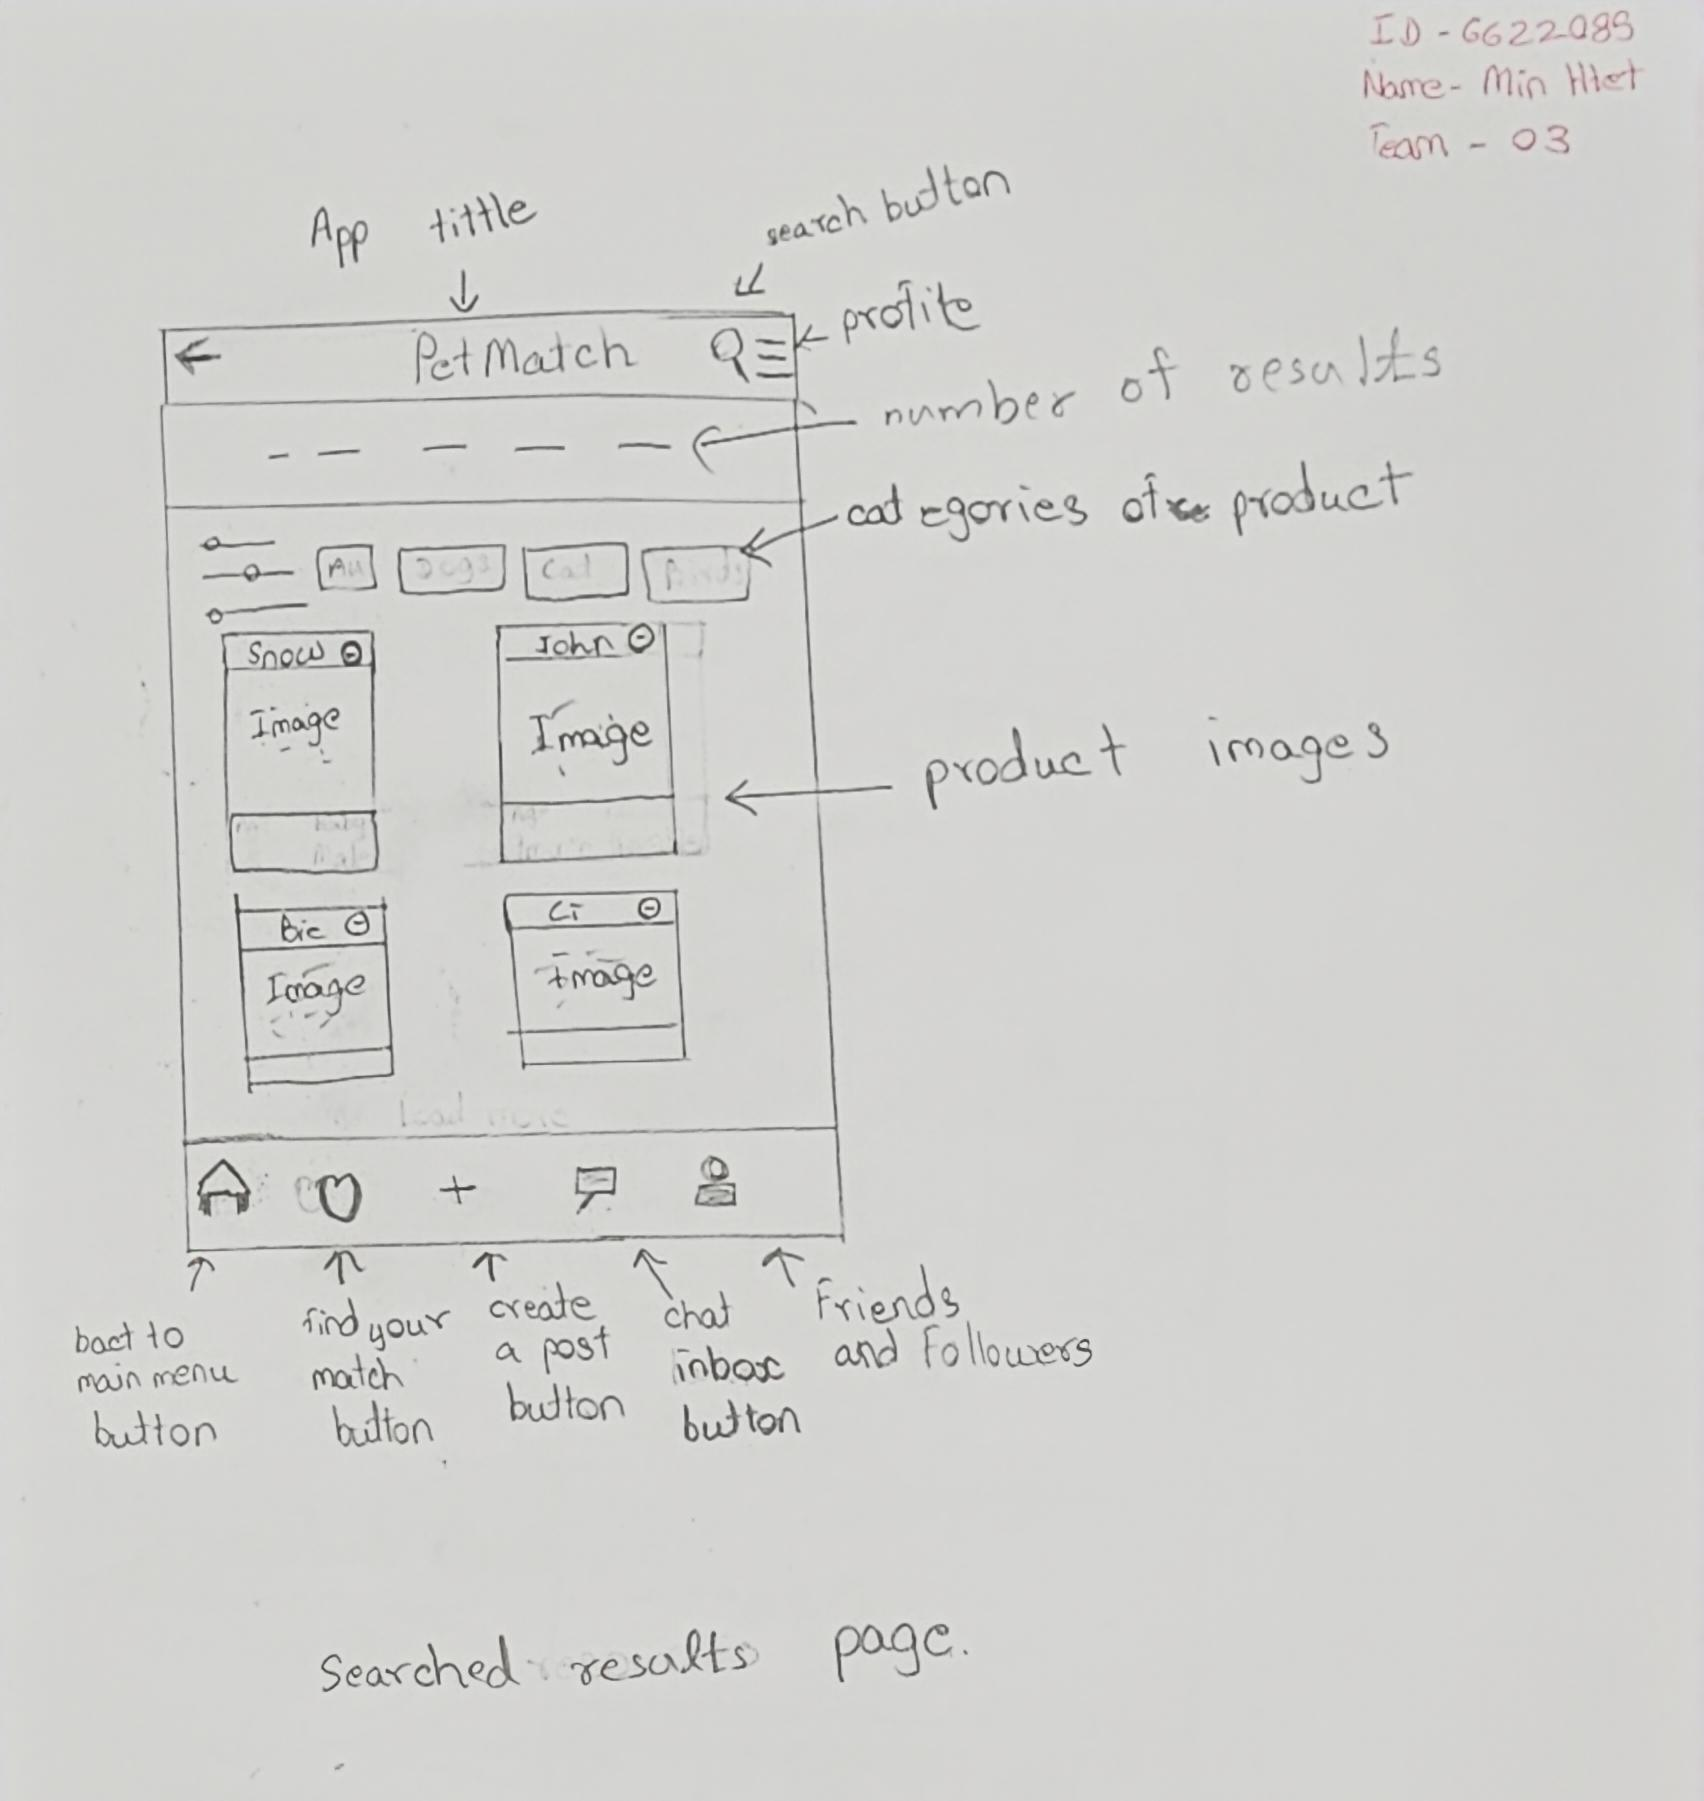 ID - 6622089
Name - Min Htet
Team - 03
App tittle
search button
profile
PetMatch
number of results
categories of product
All Dogs Cat Birds
Snow
John
Image
Image
product images
Bie
Ci
Image
Image
Load more
bact to
main menu
button
find your
match
button
create
a post
button
chat
inbox
button
Friends
and Followers
Searched results page.